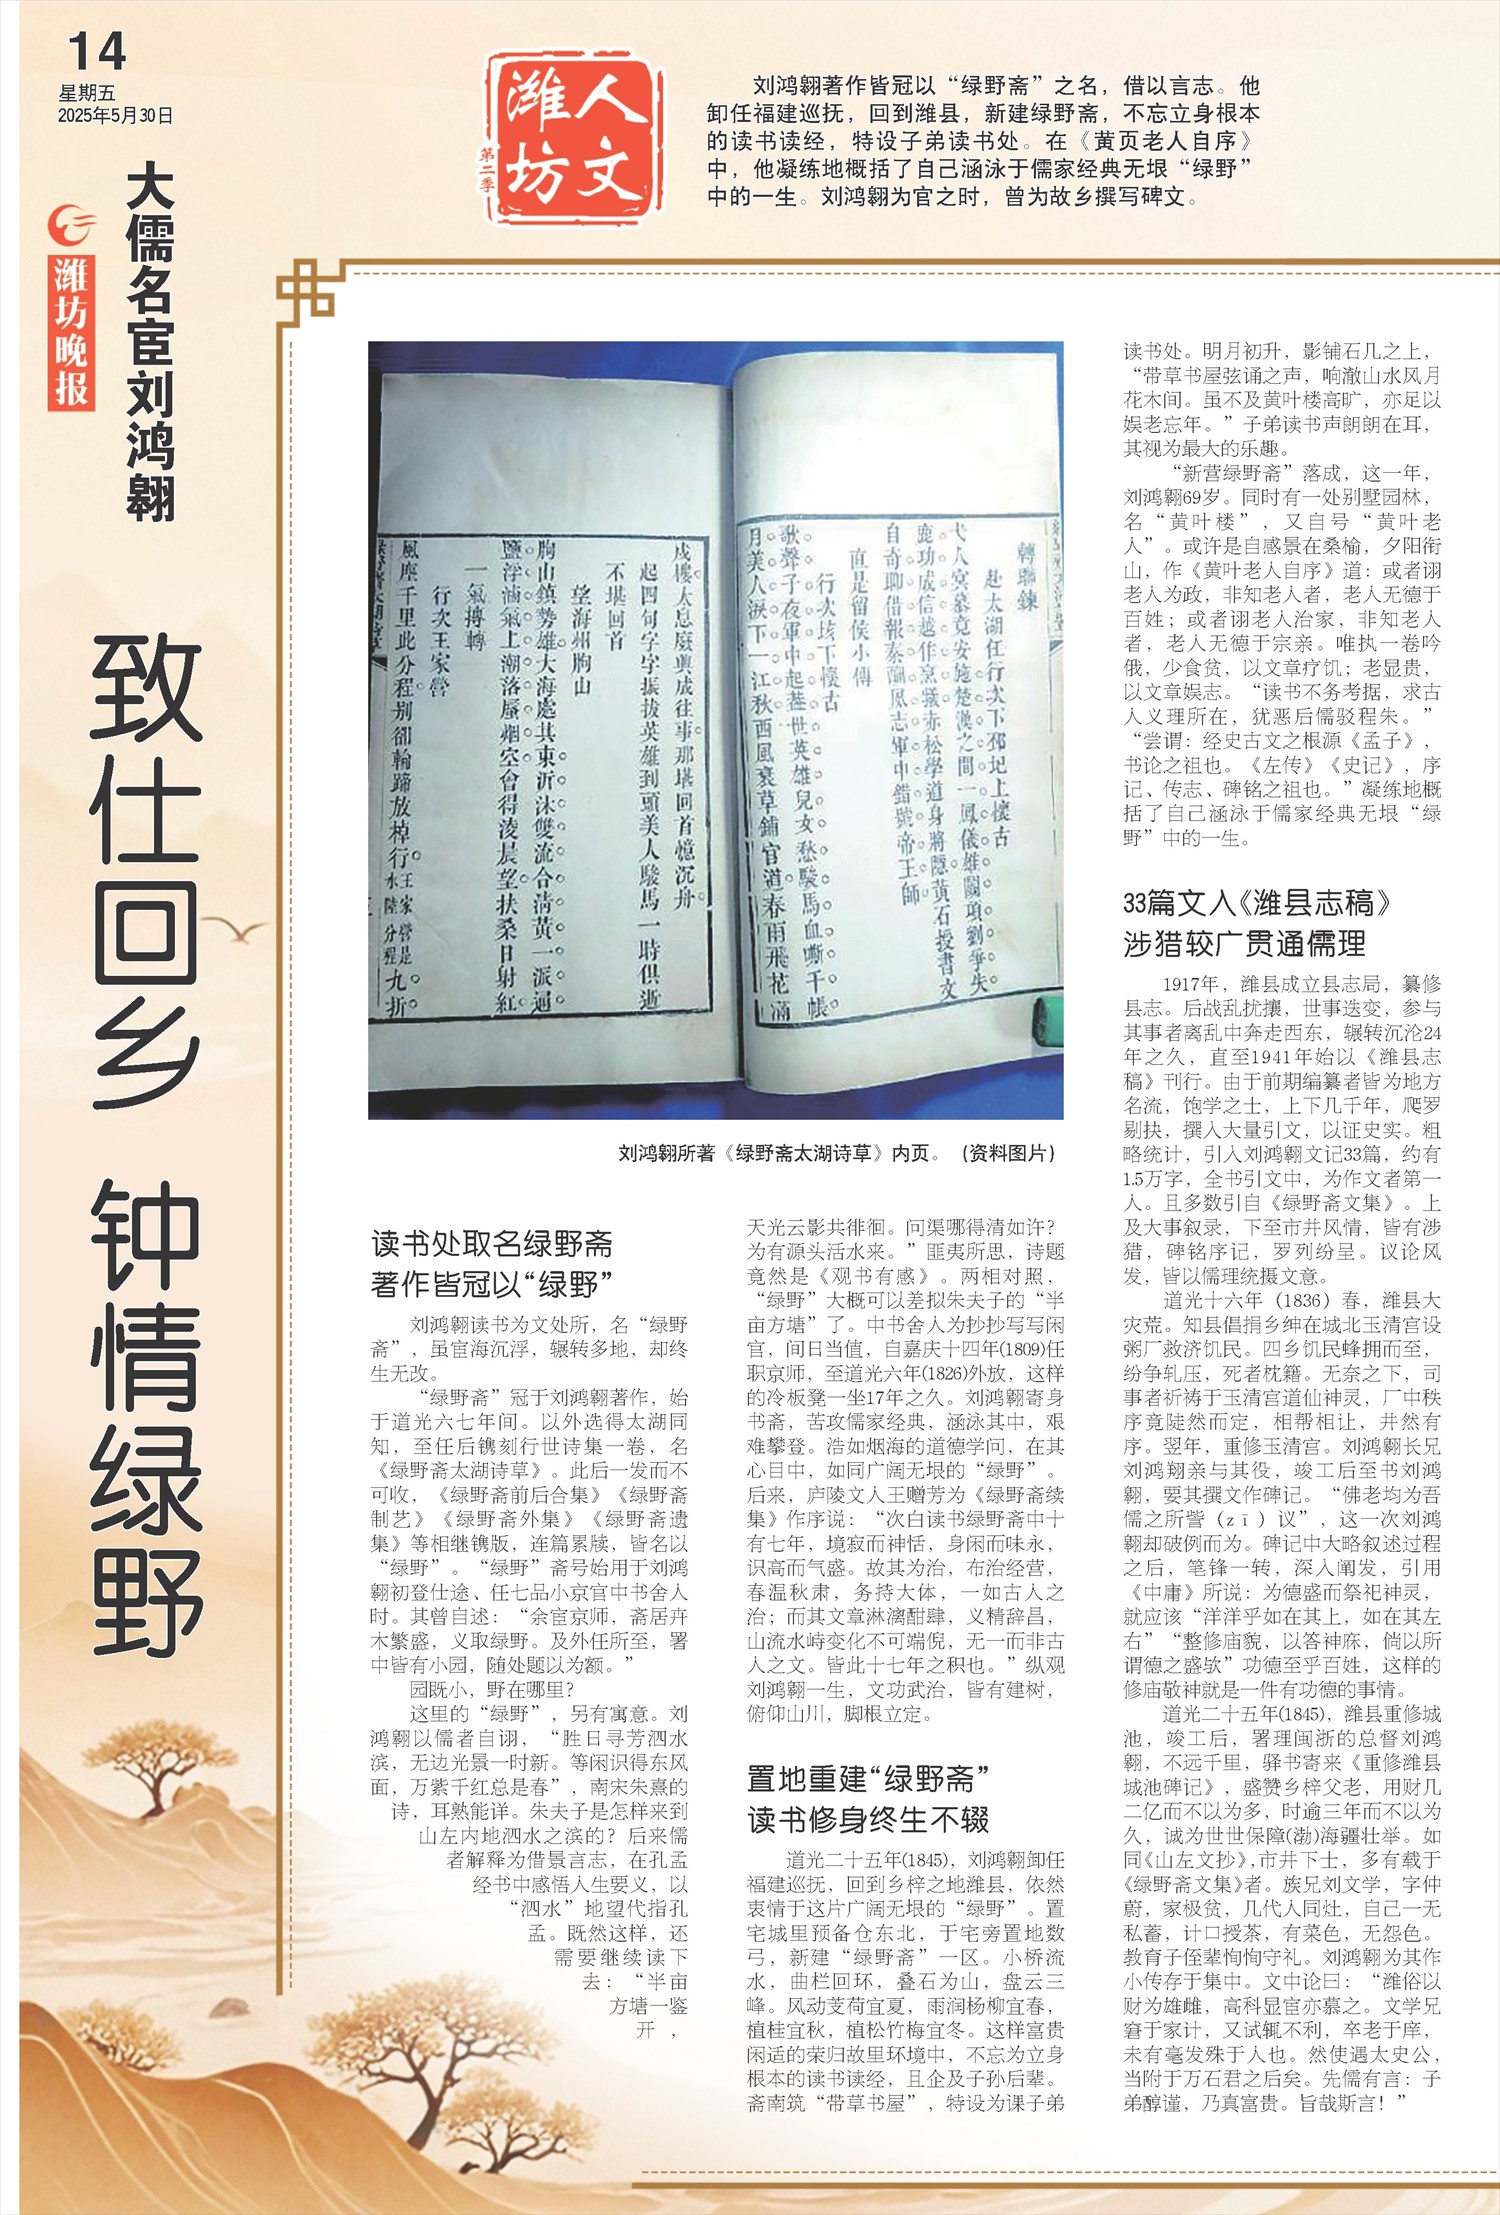 14
星期五
2025年5月30日
潍坊晚报
大儒名宦刘鸿翱
致仕回乡 钟情绿野
人文
潍坊
第二季
刘鸿翱著作皆冠以“绿野斋”之名，借以言志。他
卸任福建巡抚，回到潍县，新建绿野斋，不忘立身根本
的读书读经，特设子弟读书处。在《黄页老人自序》
中，他凝练地概括了自己涵泳于儒家经典无垠“绿野”
中的一生。刘鸿翱为官之时，曾为故乡撰写碑文。
轉聯鍊
赴太湖任行次下邳圯上懷古
鹿功成信越作烹犧赤松學道身將隱黃石授書文
自奇聊借報秦酬夙志軍中錯號帝王師
直是留侯小傳
行次垓下懷古
歌聲子夜軍中起蓋世英雄兒女愁駿馬血嘶千帳
月美人淚下一江秋西風衰草鋪官道春雨飛花滿
戍樓太息廢興成往事那堪回首憶沉舟
起四句字字振拔英雄到頭美人駿馬一時俱逝
不堪回首
望海州朐山
朐山鎮勢雄大海處其東沂沭雙流合淸黃一派通
鹽浮滷氣上潮落蜃烟空會得淩晨望扶桑日射紅
一氣搏轉
行次王家營
風塵千里此分程别卻輪蹄放棹行水陸分程王家營是九折
刘鸿翱所著《绿野斋太湖诗草》内页。（资料图片）
读书处取名绿野斋
著作皆冠以“绿野”
刘鸿翱读书为文处所，名“绿野
斋”，虽宦海沉浮，辗转多地，却终
生无改。
“绿野斋”冠于刘鸿翱著作，始
于道光六七年间。以外选得太湖同
知，至任后镌刻行世诗集一卷，名
《绿野斋太湖诗草》。此后一发而不
可收，《绿野斋前后合集》《绿野斋
制艺》《绿野斋外集》《绿野斋遗
集》等相继镌版，连篇累牍，皆名以
“绿野”。“绿野”斋号始用于刘鸿
翱初登仕途、任七品小京官中书舍人
时。其曾自述：“余宦京师，斋居卉
木繁盛，义取绿野。及外任所至，署
中皆有小园，随处题以为额。”
园既小，野在哪里？
这里的“绿野”，另有寓意。刘
鸿翱以儒者自诩，“胜日寻芳泗水
滨，无边光景一时新。等闲识得东风
面，万紫千红总是春”，南宋朱熹的
诗，耳熟能详。朱夫子是怎样来到
山左内地泗水之滨的？后来儒
者解释为借景言志，在孔孟
经书中感悟人生要义，以
“泗水”地望代指孔
孟。既然这样，还
需要继续读下
去：“半亩
方塘一鉴
开，
天光云影共徘徊。问渠哪得清如许？
为有源头活水来。”匪夷所思，诗题
竟然是《观书有感》。两相对照，
“绿野”大概可以差拟朱夫子的“半
亩方塘”了。中书舍人为抄抄写写闲
官，间日当值，自嘉庆十四年(1809)任
职京师，至道光六年(1826)外放，这样
的冷板凳一坐17年之久。刘鸿翱寄身
书斋，苦攻儒家经典，涵泳其中，艰
难攀登。浩如烟海的道德学问，在其
心目中，如同广阔无垠的“绿野”。
后来，庐陵文人王赠芳为《绿野斋续
集》作序说：“次白读书绿野斋中十
有七年，境寂而神恬，身闲而味永，
识高而气盛。故其为治，布治经营，
春温秋肃，务持大体，一如古人之
治；而其文章淋漓酣肆，义精辞昌，
山流水峙变化不可端倪，无一而非古
人之文。皆此十七年之积也。”纵观
刘鸿翱一生，文功武治，皆有建树，
俯仰山川，脚根立定。
置地重建“绿野斋”
读书修身终生不辍
道光二十五年(1845)，刘鸿翱卸任
福建巡抚，回到乡梓之地潍县，依然
衷情于这片广阔无垠的“绿野”。置
宅城里预备仓东北，于宅旁置地数
弓，新建“绿野斋”一区。小桥流
水，曲栏回环，叠石为山，盘云三
峰。风动芰荷宜夏，雨润杨柳宜春，
植桂宜秋，植松竹梅宜冬。这样富贵
闲适的荣归故里环境中，不忘为立身
根本的读书读经，且企及子孙后辈。
斋南筑“带草书屋”，特设为课子弟
读书处。明月初升，影铺石几之上，
“带草书屋弦诵之声，响澈山水风月
花木间。虽不及黄叶楼高旷，亦足以
娱老忘年。”子弟读书声朗朗在耳，
其视为最大的乐趣。
“新营绿野斋”落成，这一年，
刘鸿翱69岁。同时有一处别墅园林，
名“黄叶楼”，又自号“黄叶老
人”。或许是自感景在桑榆，夕阳衔
山，作《黄叶老人自序》道：或者诩
老人为政，非知老人者，老人无德于
百姓；或者诩老人治家，非知老人
者，老人无德于宗亲。唯执一卷吟
俄，少食贫，以文章疗饥；老显贵，
以文章娱志。“读书不务考据，求古
人义理所在，犹恶后儒驳程朱。”
“尝谓：经史古文之根源《孟子》，
书论之祖也。《左传》《史记》，序
记、传志、碑铭之祖也。”凝练地概
括了自己涵泳于儒家经典无垠“绿
野”中的一生。
33篇文入《潍县志稿》
涉猎较广贯通儒理
1917年，潍县成立县志局，纂修
县志。后战乱扰攘，世事迭变，参与
其事者离乱中奔走西东，辗转沉沦24
年之久，直至1941年始以《潍县志
稿》刊行。由于前期编纂者皆为地方
名流，饱学之士，上下几千年，爬罗
剔抉，撰入大量引文，以证史实。粗
略统计，引入刘鸿翱文记33篇，约有
1.5万字，全书引文中，为作文者第一
人。且多数引自《绿野斋文集》。上
及大事叙录，下至市井风情，皆有涉
猎，碑铭序记，罗列纷呈。议论风
发，皆以儒理统摄文意。
道光十六年（1836）春，潍县大
灾荒。知县倡捐乡绅在城北玉清宫设
粥厂救济饥民。四乡饥民蜂拥而至，
纷争轧压，死者枕籍。无奈之下，司
事者祈祷于玉清宫道仙神灵，厂中秩
序竟陡然而定，相帮相让，井然有
序。翌年，重修玉清宫。刘鸿翱长兄
刘鸿翔亲与其役，竣工后至书刘鸿
翱，要其撰文作碑记。“佛老均为吾
儒之所訾（zī）议”，这一次刘鸿
翱却破例而为。碑记中大略叙述过程
之后，笔锋一转，深入阐发，引用
《中庸》所说：为德盛而祭祀神灵，
就应该“洋洋乎如在其上，如在其左
右”“整修庙貌，以答神庥，倘以所
谓德之盛欤”功德至乎百姓，这样的
修庙敬神就是一件有功德的事情。
道光二十五年(1845)，潍县重修城
池，竣工后，署理闽浙的总督刘鸿
翱，不远千里，驿书寄来《重修潍县
城池碑记》，盛赞乡梓父老，用财几
二亿而不以为多，时逾三年而不以为
久，诚为世世保障(渤)海疆壮举。如
同《山左文抄》，市井下士，多有载于
《绿野斋文集》者。族兄刘文学，字仲
蔚，家极贫，几代人同灶，自己一无
私蓄，计口授茶，有菜色，无怨色。
教育子侄辈恂恂守礼。刘鸿翱为其作
小传存于集中。文中论曰：“潍俗以
财为雄雌，高科显宦亦慕之。文学兄
窘于家计，又试辄不利，卒老于庠，
未有毫发殊于人也。然使遇太史公，
当附于万石君之后矣。先儒有言：子
弟醇谨，乃真富贵。旨哉斯言！”